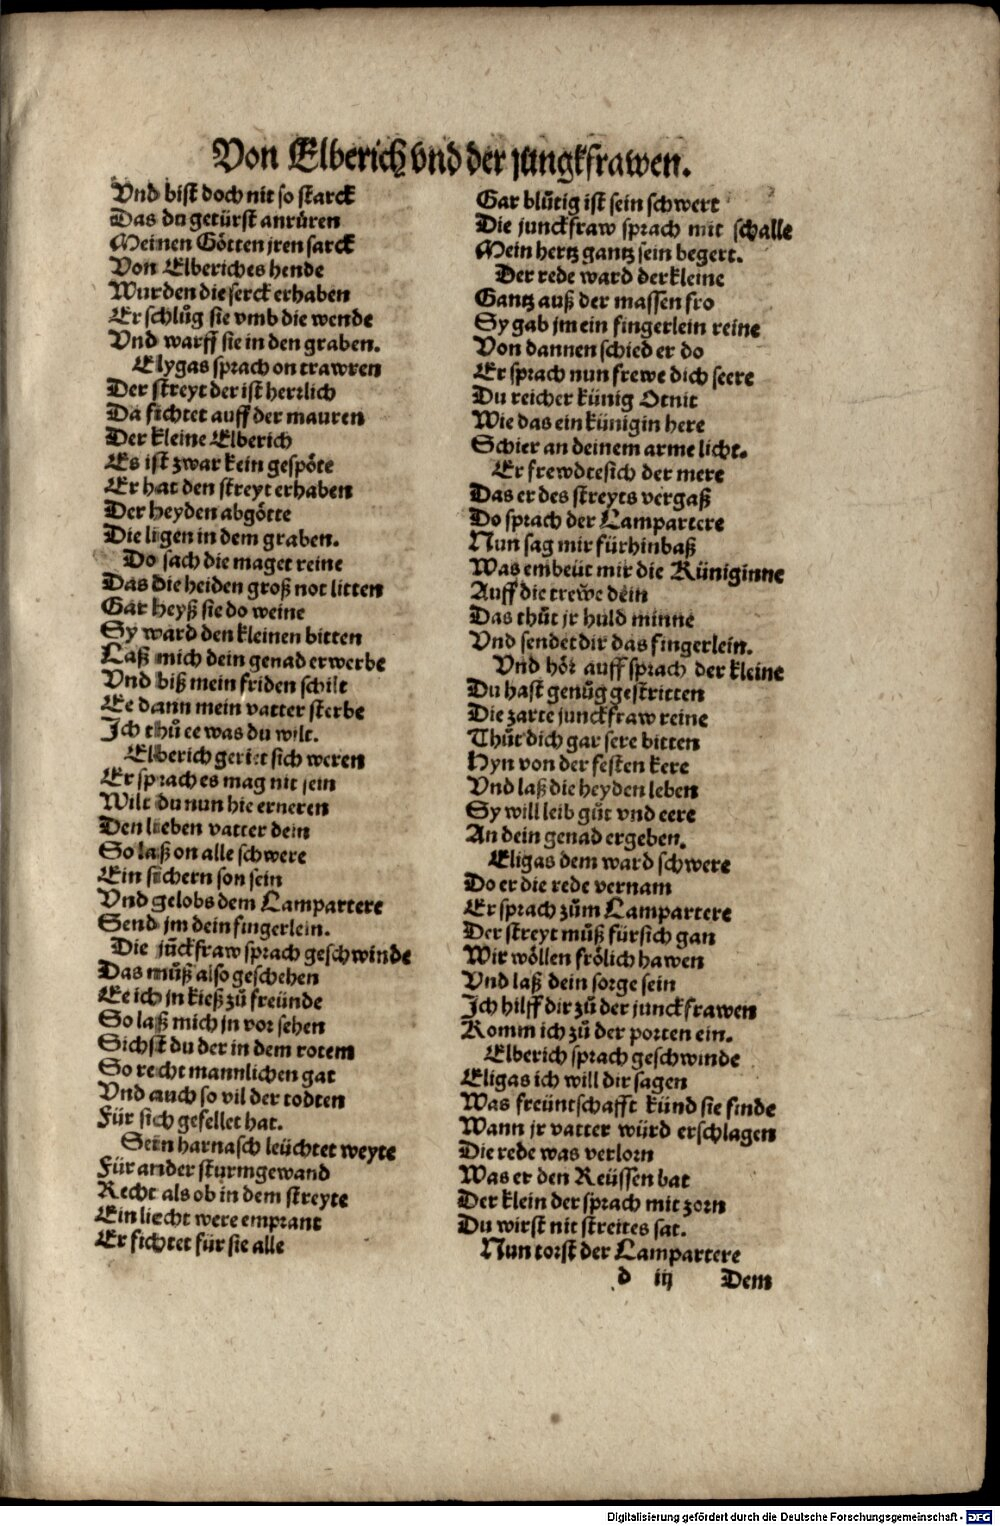 Von Elberich vnd der jungkfrawen.
Vnd bist doch nit so starck
Das du getürst anrüren
Meinen Götten jren sarck
Von Elberiches hende
Wurden die serck erhaben
Er schlůg sie vmb die wende
Vnd warff sie in den graben.
Elygas sprach on trawren
Der streyt der ist herrlich
Da fichtet auff der mauren
Der kleine Elberich
Es ist zwar kein gespöte
Er hat den streyt erhaben
Der heyden abgötte
Die ligen in dem graben.
Do sach die maget reine
Das die heiden groß not litten
Gar heyß sie do weine
Sy ward den kleinen bitten
Laß mich dein genad erwerbe
Vnd biß mein friden schilt
Ee dann mein vatter sterbe
Ich thů ee was du wilt.
Elberich geriet sich weren
Er sprach es mag nit sein
Wilt du nun hie erneren
Den lieben vatter dein
So laß on alle schwere
Ein sichern son sein
Vnd gelobs dem Lampartere
Send jm dein fingerlein.
Die jūckfraw sprach geschwinde
Das můß also geschehen
Ee ich jn kieß zů freünde
So laß mich jn vor sehen
Sichst du der in dem rotem
So recht mannlichen gat
Vnd auch so vil der todten
Für sich gefellet hat.
Sein harnasch leüchtet weyte
Für ander sturmgewand
Recht als ob in dem streyte
Ein liecht were emprant
Er fichtet für sie alle
Gar blůtig ist sein schwert
Die junckfraw sprach mit schalle
Mein hertz gantz sein begert.
Der rede ward der kleine
Gantz auß der massen fro
Sy gab jm ein fingerlein reine
Von dannen schied er do
Er sprach nun frewe dich seere
Du reicher künig Otnit
Wie das ein künigin here
Schier an deinem arme licht.
Er frewdte sich der mere
Das er des streyts vergaß
Do sprach der Lampartere
Nun sag mir fürhinbaß
Was embeüt mir die Küniginne
Auff die trewe dein
Das thůt jr huld minne
Vnd sendet dir das fingerlein.
Vnd hör auff sprach der kleine
Du hast genůg gestritten
Die zarte junckfraw reine
Thůt dich gar sere bitten
Hyn von der festen kere
Vnd laß die heyden leben
Sy will leib gůt vnd eere
An dein genad ergeben.
Eligas dem ward schwere
Do er die rede vernam
Er sprach zům Lampartere
Der streyt můß fürsich gan
Wir wöllen frölich hawen
Vnd laß dein sorge sein
Ich hilff dir zů der junckfrawen
Komm ich zů der porten ein.
Elberich sprach geschwinde
Eligas ich will dir sagen
Was freüntschafft künd sie finde
Wann jr vatter würd erschlagen
Die rede was verlorn
Was er den Reüssen bat
Der klein der sprach mit zorn
Du wirst nit streites sat.
Nun torst der Lampartere
d iij Dem
Digitalisierung gefördert durch die Deutsche Forschungsgemeinschaft - DFG